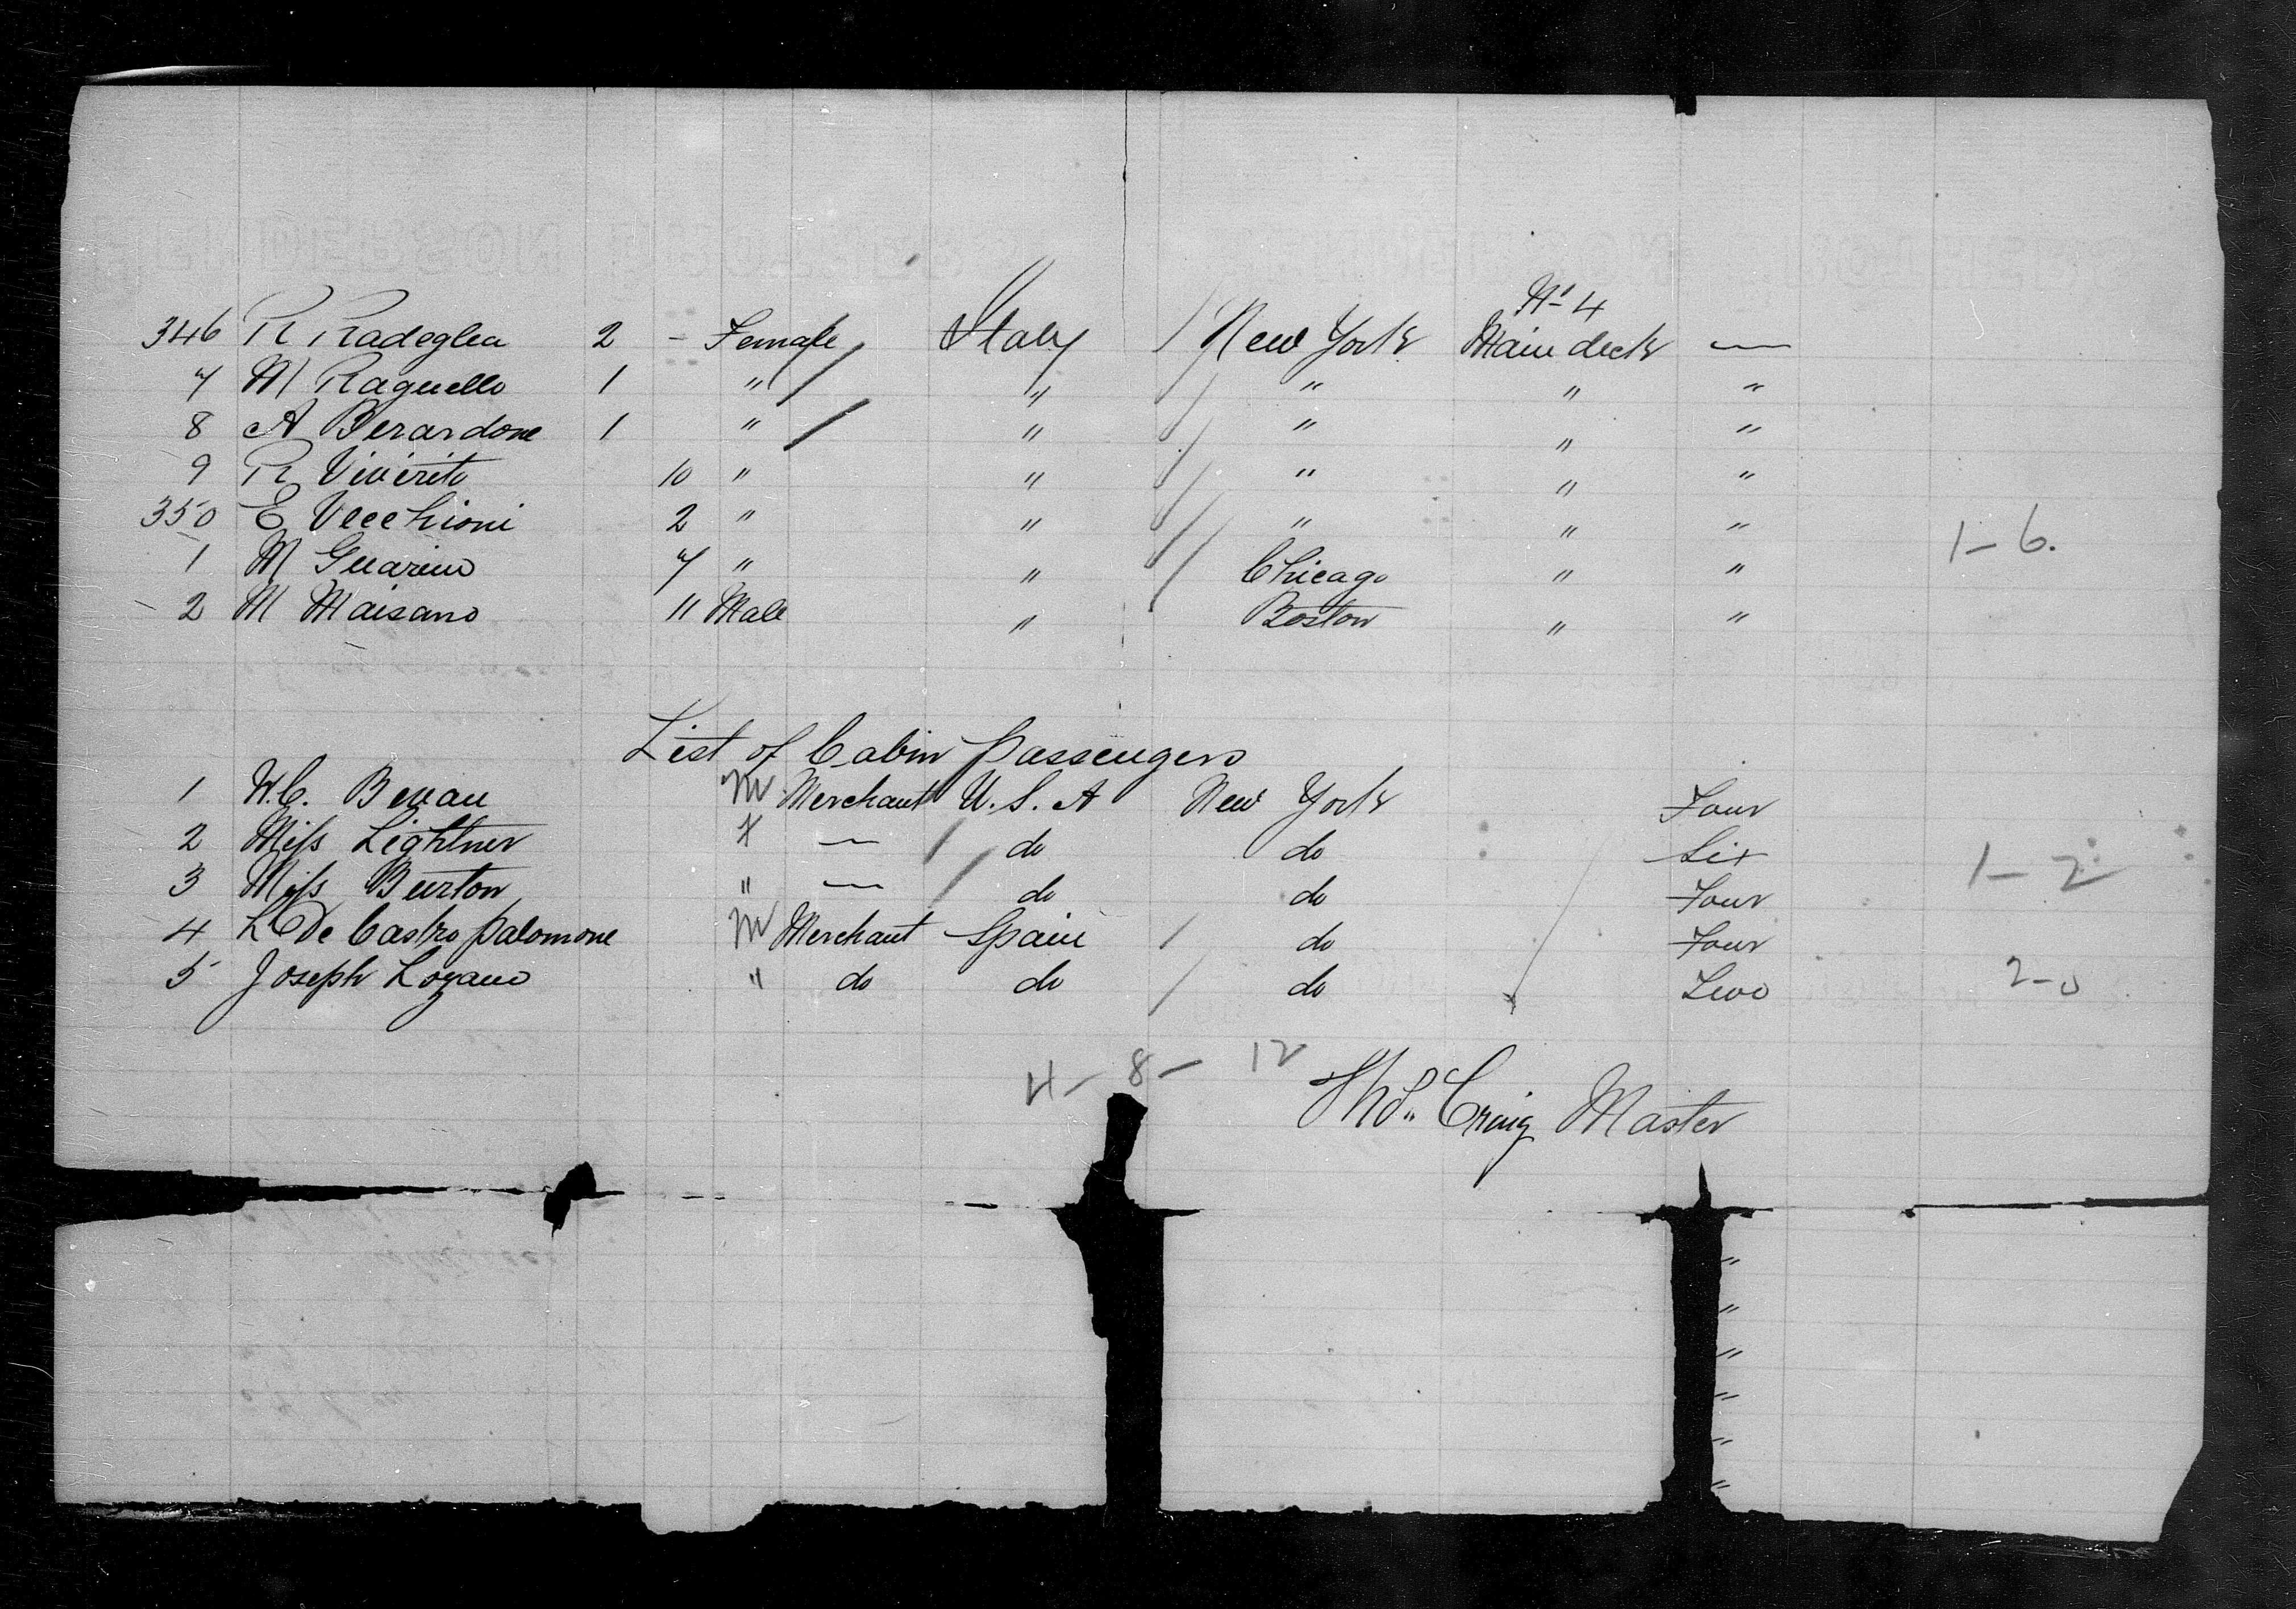 No 4
346 R Radeglea 2 - Female Italy / New York Main deck —
7 M Raguello 1 " / " / " " "
8 A Berardone 1 " / " / " " "
9 R Viverito 10 " " / " " "
350 E Vecchioni 2 " " / " " "
1 M Guarino 7 " " / Chicago " " 1-6.
2 M Maisano 11 Male " Boston " "
List of Cabin passengers
1 W.C. Bevan M Merchant U.S.A New York Four
2 Miss Lightner F — / do do Six
3 Miss Burton " — / do do Four 1-2
4 L De Castro palomone M Merchant Spain / do Four
5 Joseph Lozano " do do / do Two 2-0
4- 8- 12
Thos. Craig Master
"
"
"
"
"
"